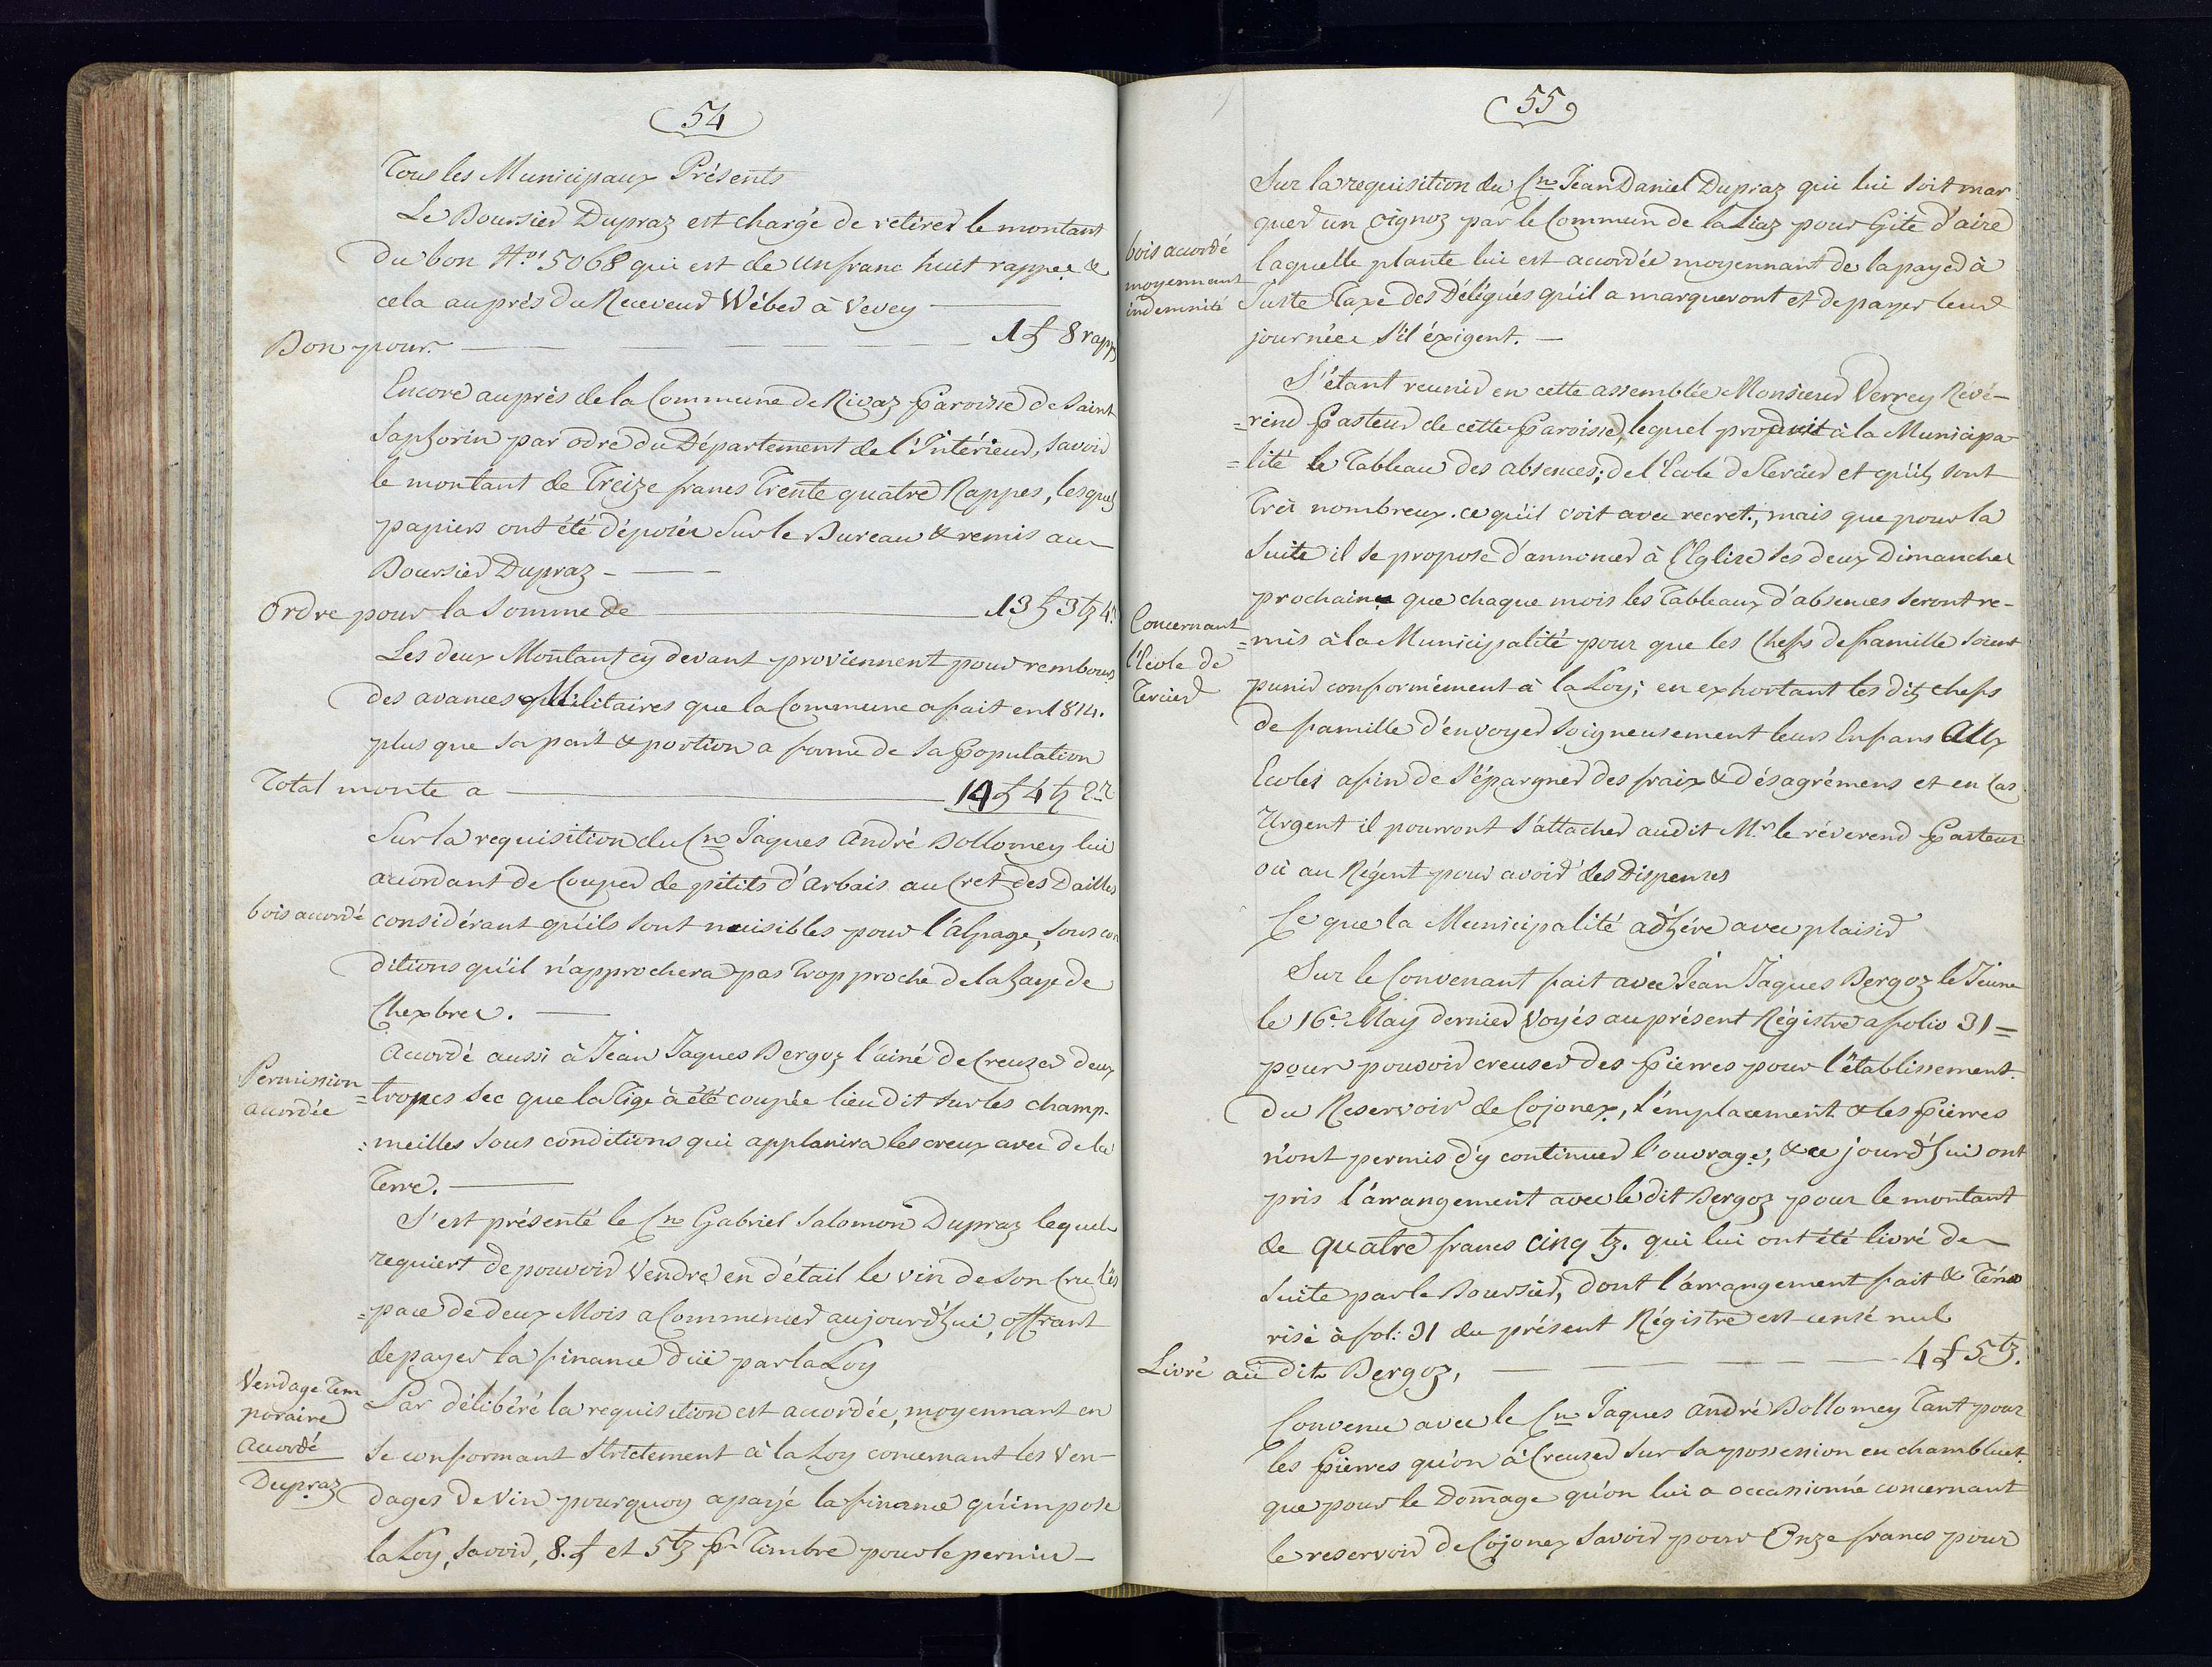 54
Tous les Municipaux Présents
Le Boursier Dupraz est chargé de retirer le montant
du bon N.os 5068 qui est de un franc huit rappes &
cela auprès du Receveur Wéber à Vevey
Bon pour. 1 f 8 rapp
Encore auprès de la Commune de Rivaz Paroisse de Saint
Saphorin par odre du Département de l'Intérieur, Savoir
le montant de Treize francs Trente quatre Rappes, lesquels
papiers ont été déposés Sur le Bureau & remis au
Boursier Dupraz
Ordre pour la Somme de 13 f 3 bz 4
Les deux Montant cy devant proviennent pour rembours
des avances Militaires que la Commune a fait en 1814.
plus que sa part & portion a forme de Sa Population
Total monte a 14 f 4 bz 2 r
Sur la requisition du Cn Jaques André Bollomey lui
accordant de Couper de petits d'Arbais au Cret des Dailles
bois accordé
considérant qu'ils sont nuisibles pour l'alpage, Sous con
ditions qu'il n'approchera pas trop proche de la haye de
Chexbres.
Accordé aussi à Jean Jaques Bergoz l'ainé de Creuzer deux
Permission
accordée
=tropes sec que la Tige à été coupée lieu dit sur les champ-
=meilles sous conditions qui applanira les creux avec de la
Terre.
S'est présenté le Cn Gabriel Salomon Dupraz lequel
requiert de pouvoir Vendre en détail le vin de son Cru l'es
=pace de deux Mois a Commencer aujourd'hui, offrant
de payer la finance düe par la Loy
Vendage Tem
poraire
accordé
Dupraz
Par délibéré la requisition est accordée, moyennant en
se conformant Strictement à la Loy concernant les Ven-
dages de Vin pourquoy a payé la finance qu'impose
la Loy, Savoir, 8. f et 5 bz pr Timbre pour le permis
55
Sur la requisition du Cn Jean Daniel Dupraz qui lui soit mar
quer un oignoz par le Commun de la Liaz pour Gite d'aire
bois accordé
moyennant
indemnité
laquelle plante lui est accordée moyennant de la payer à
Juste Taxe des Délégués qu'il a marqueront et de payer leur
journées s'il éxigent.
S'étant reunir en cette assemblée Monsieur Verrey Révé-
=rend Pasteur de cette Paroisse, lequel produit à la Municipa-
=lité le Tableau des absences; de l'Ecole de Tercier et qu'ils sont
Très nombreux. ce qu'il voit avec recret., mais que pour la
Suite il se propose d'annoncer à l'Eglise les deux Dimanches
prochains que chaque mois les Tableaux d'absences seront re-
Concernant
l'école de
Tercier
=mis à la Municipalité pour que les Chefs de famille soient
punir conformément à la Loy; en exhortant les dits chefs
de famille d'envoyer soigneusement leurs Enfans Aux
Ecoles afin de s'épargner des fraix & désagrémens et en Cas
Urgent il pourront s'attacher audit Mr. le réverend Pasteur
où au Régent pour avoir des Dispenses
Ce que la Municipalité adhére avec plaisir
Sur le Convenant fait avec Jean Jaques Bergoz le Jeune
le 16e May dernier Voyés au présent Régistre a folio 31=
pour pouvoir creuser des Pierres pour l'établissement
du Reservoir de Cojonex, l'emplacement & les Pierres
n'ont permis d'y continuer l'ouvrage, & ce jourd'hui ont
pris l'arrangement avec le dit Bergoz pour le montant
de quatre francs cinq bz. qui lui ont été livré de
Suite par le Boursier, dont l'arrangement fait &
risé à fol: 31 du présent Régistre est censé nul
Livré au dit Bergoz, 4 f 5 bz.
Convenu avec le Cn Jaques André Bollomey Tant pour
les Pierres qu'on à Creuser sur sa possession en
que pour le Domage qu'on lui a occasionné concernant
le reservoir de Cojonex Savoir pour Onze francs pour